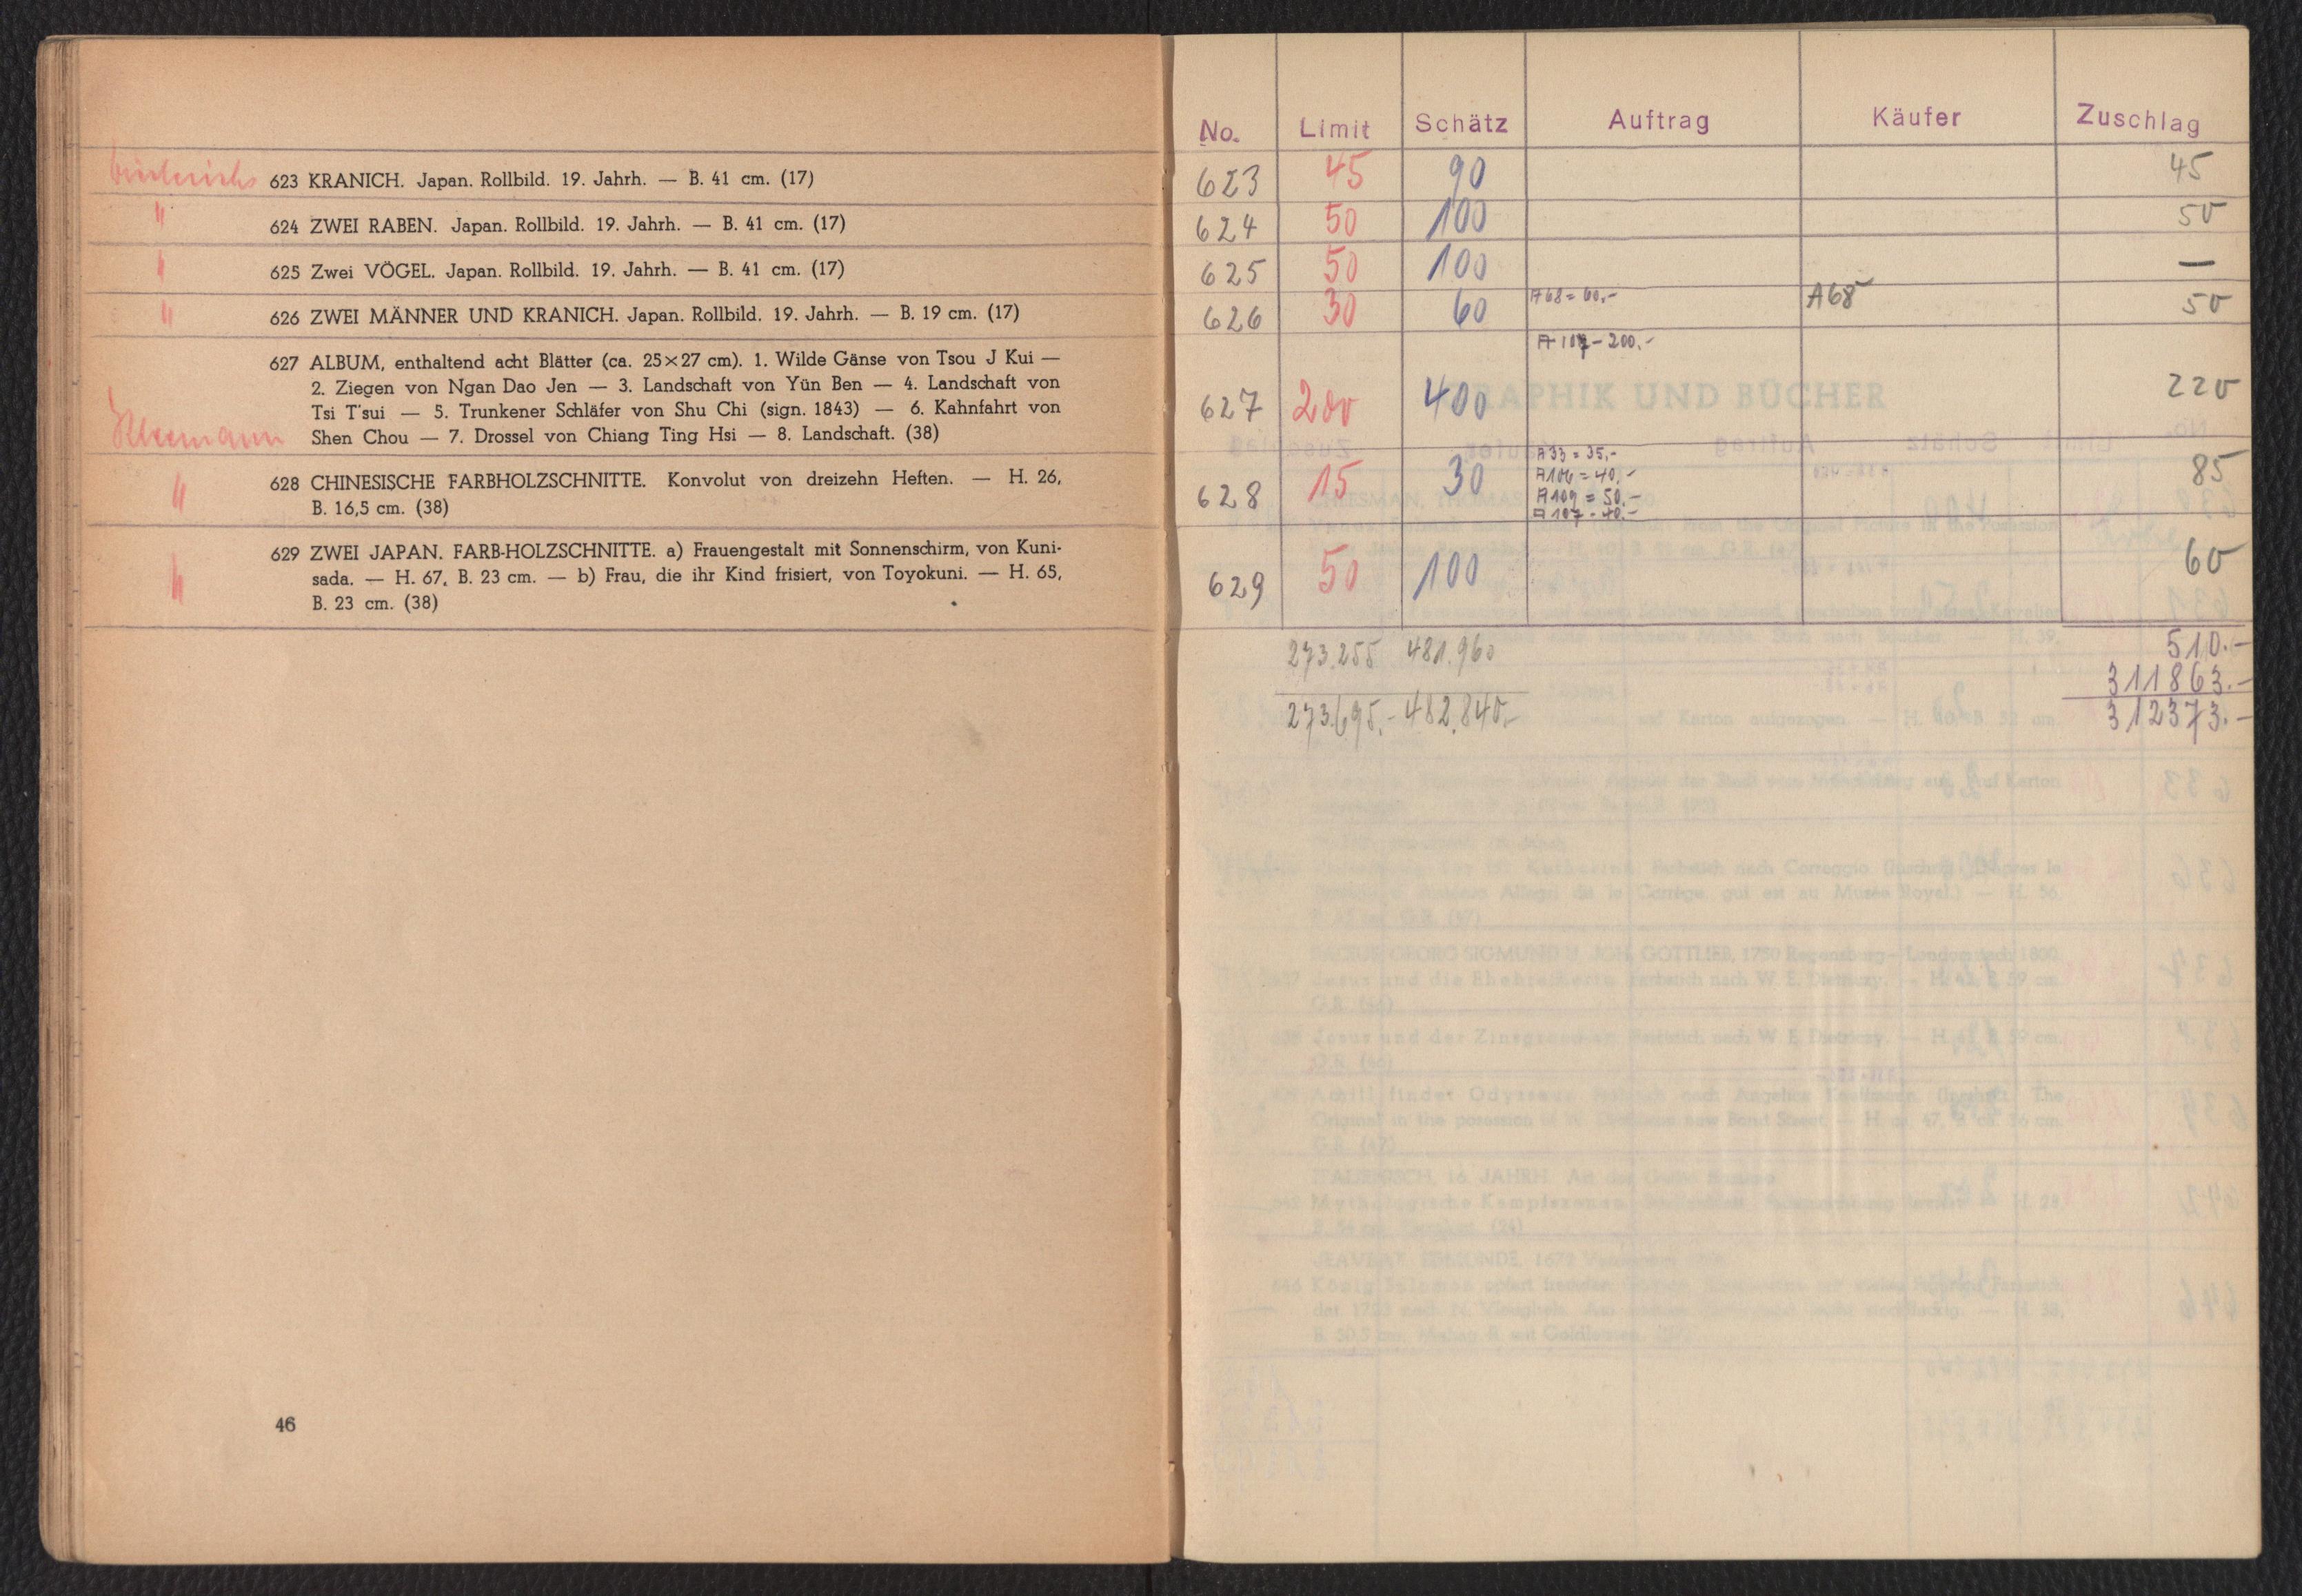 623 KRANICH. Japan. Rollbild. 19. Jahrh. — B. 41 cm. (17)
" 624 ZWEI RABEN. Japan. Rollbild. 19. Jahrh. — B. 41 cm. (17)
" 625 Zwei VÖGEL. Japan. Rollbild. 19. Jahrh. — B. 41 cm. (17)
" 626 ZWEI MÄNNER UND KRANICH. Japan. Rollbild. 19. Jahrh. — B. 19 cm. (17)
627 ALBUM, enthaltend acht Blätter (ca. 25×27 cm). 1. Wilde Gänse von Tsou J Kui —
2. Ziegen von Ngan Dao Jen — 3. Landschaft von Yün Ben — 4. Landschaft von
Tsi T'sui — 5. Trunkener Schläfer von Shu Chi (sign. 1843) — 6. Kahnfahrt von
Shen Chou — 7. Drossel von Chiang Ting Hsi — 8. Landschaft. (38)
" 628 CHINESISCHE FARBHOLZSCHNITTE. Konvolut von dreizehn Heften. — H. 26,
B. 16,5 cm. (38)
629 ZWEI JAPAN. FARB-HOLZSCHNITTE. a) Frauengestalt mit Sonnenschirm, von Kuni-
" sada. — H. 67, B. 23 cm. — b) Frau, die ihr Kind frisiert, von Toyokuni. — H. 65,
B. 23 cm. (38)
46
No. Limit Schätz Auftrag Käufer Zuschlag
623 45 90 45
624 50 100 50
625 50 100 —
626 30 60 A68 = 60,- A68 50
A 107 - 200.-
627 200 400 220
A33 = 35,-
628 15 30 A106 = 40,- 85
A109 = 50.-
A107 = 40.-
629 50 100 60
273.255 481.960 510.-
311863.-
273.695.- 482.840,- 312373.-